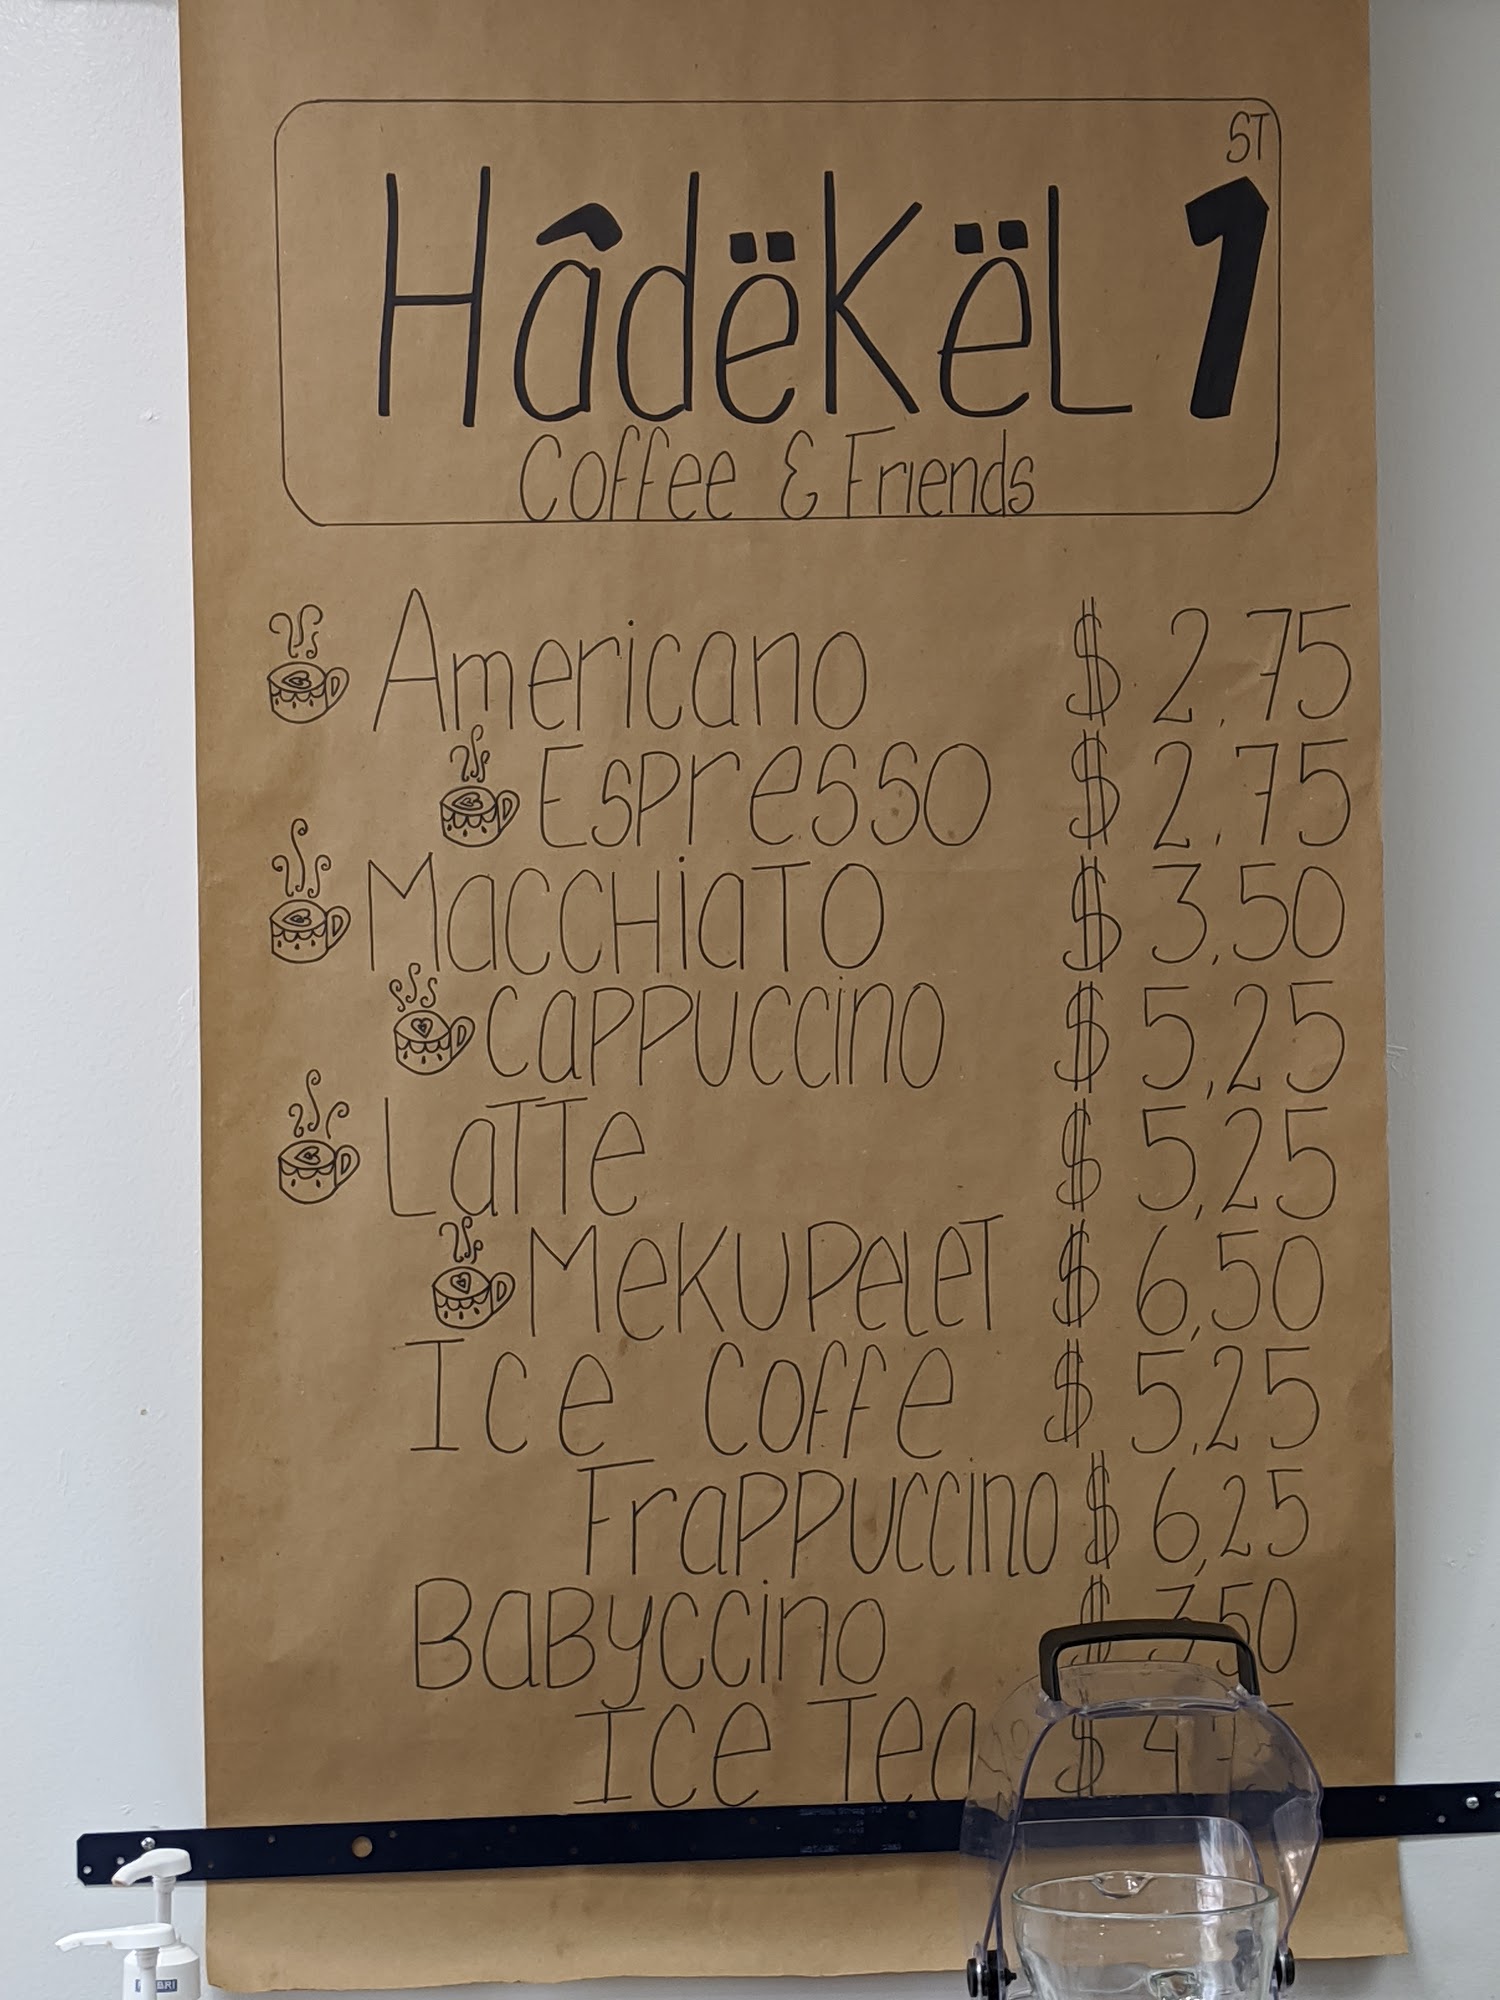 ST
Hâdëkël 1
Coffee & Friends
Americano $ 2.75
Espresso $ 2.75
Macchiato $ 3,50
Cappuccino $ 5,25
Latte $ 5,25
Mekupelet $ 6,50
Ice Coffe $ 5,25
Frappuccino $ 6,25
Babyccino $ 3,50
Ice Tea $ 4